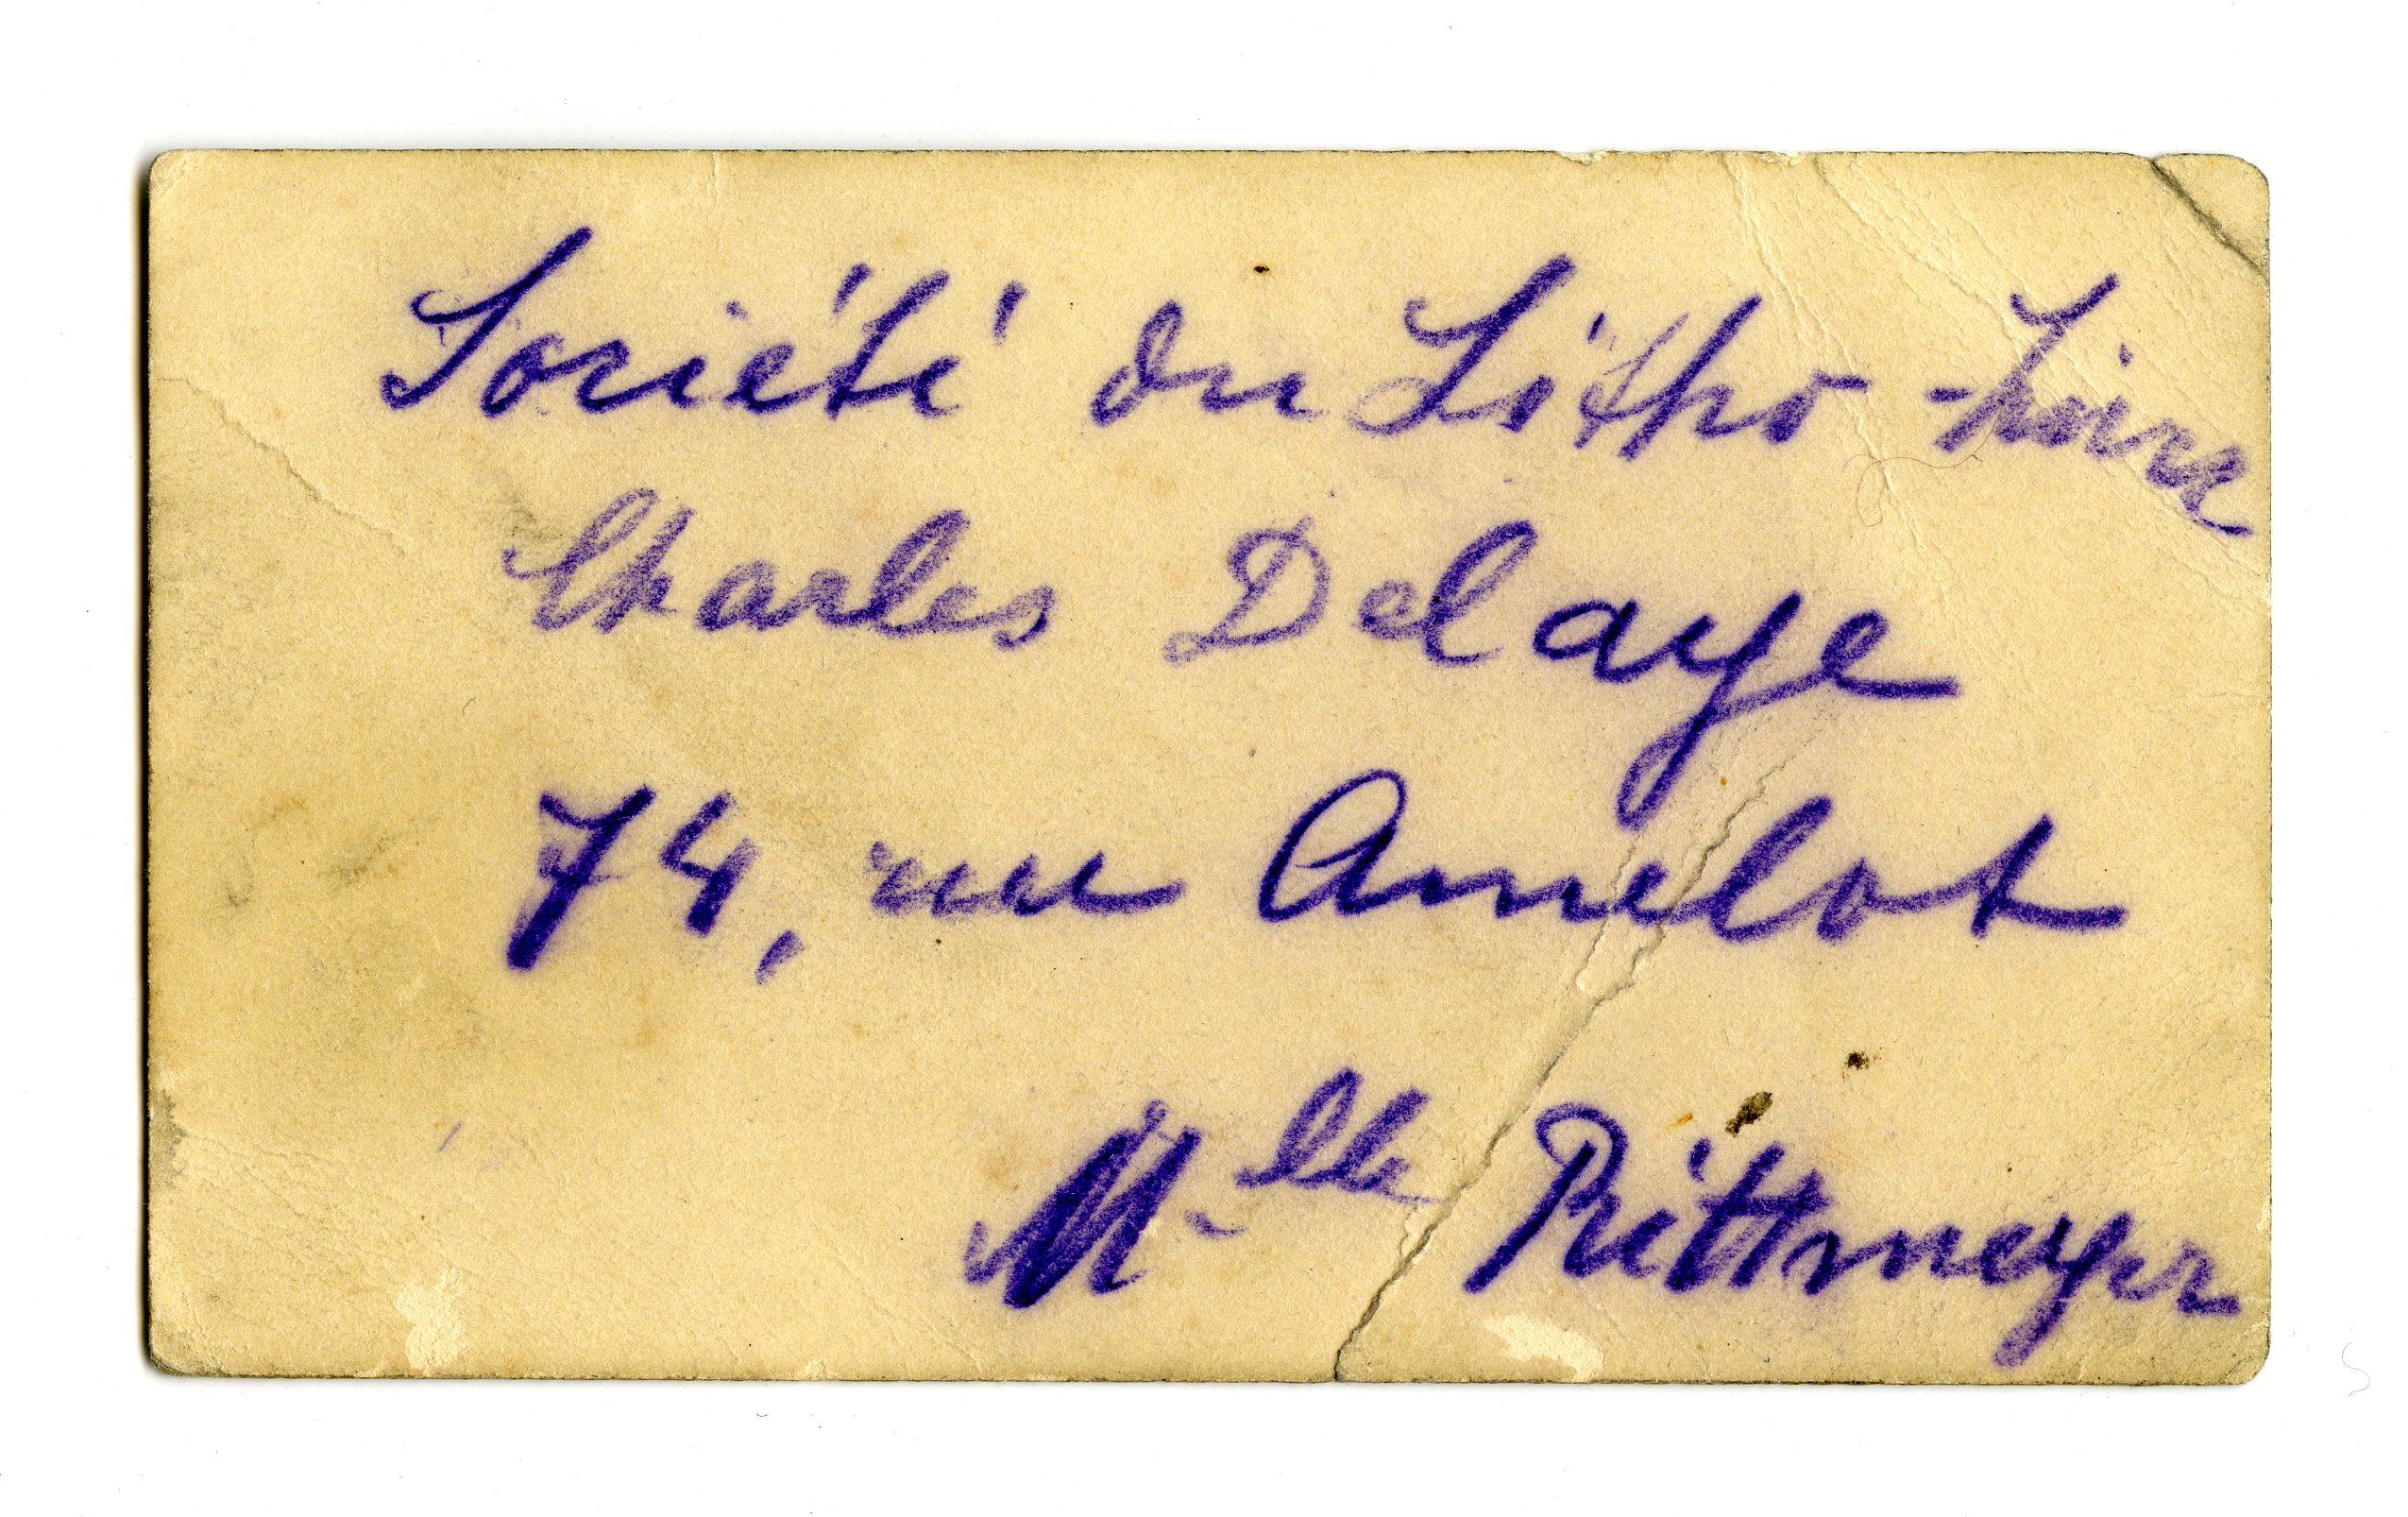 Société du Litho-
Charles Delaye
74, rue Amelot
M-lle Rittmeyer